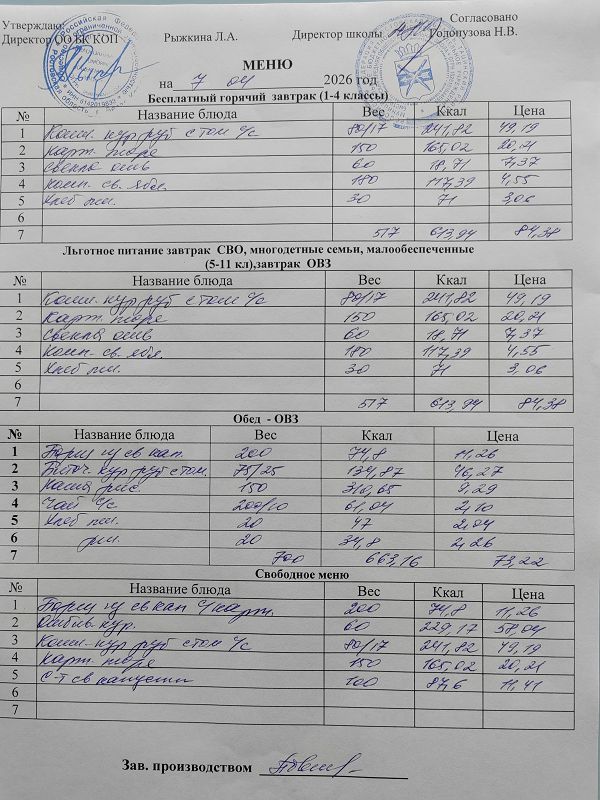 Утверждаю: Согласовано
Директор ОО БК КОП Рыжкина Л.А. Директор школы Голопузова Н.В.
МЕНЮ
на 7 04 2026 год
Бесплатный горячий завтрак (1-4 классы)
№ Название блюда Вес Ккал Цена
1 Котл. кур руб с том с/с 80/17 241,82 49,19
2 Карт. пюре 150 165,02 20,21
3 Свекла отв 60 18,71 7,37
4 Комп. св. ябл. 180 117,39 4,55
5 Хлеб пш. 30 71 3,06
6
7 517 613,94 84,38
Льготное питание завтрак СВО, многодетные семьи, малообеспеченные
(5-11 кл),завтрак ОВЗ
№ Название блюда Вес Ккал Цена
1 Котл. кур руб с том с/с 80/17 241,82 49,19
2 Карт. пюре 150 165,02 20,21
3 Свекла отв 60 18,71 7,37
4 Комп. св. ябл. 180 117,39 4,55
5 Хлеб пш. 30 71 3,06
6
7 517 613,94 84,38
Обед - ОВЗ
№ Название блюда Вес Ккал Цена
1 Борщ из св кап. 200 74,8 11,26
2 Биточ. кур руб с том. 75/25 134,87 46,27
3 Каша рис. 150 310,65 9,29
4 Чай с/с 200/10 61,04 2,10
5 Хлеб пш. 20 47 2,04
6 рж. 20 34,8 2,26
7 700 663,16 73,22
Свободное меню
№ Название блюда Вес Ккал Цена
1 Борщ из св кап с/карт. 200 74,8 11,26
2 кур. 60 229,17 58,04
3 Котл. кур руб с том с/с 80/17 241,82 49,19
4 Карт. пюре 150 165,02 20,21
5 С-т св капусты 100 87,6 11,41
6
7
Зав. производством